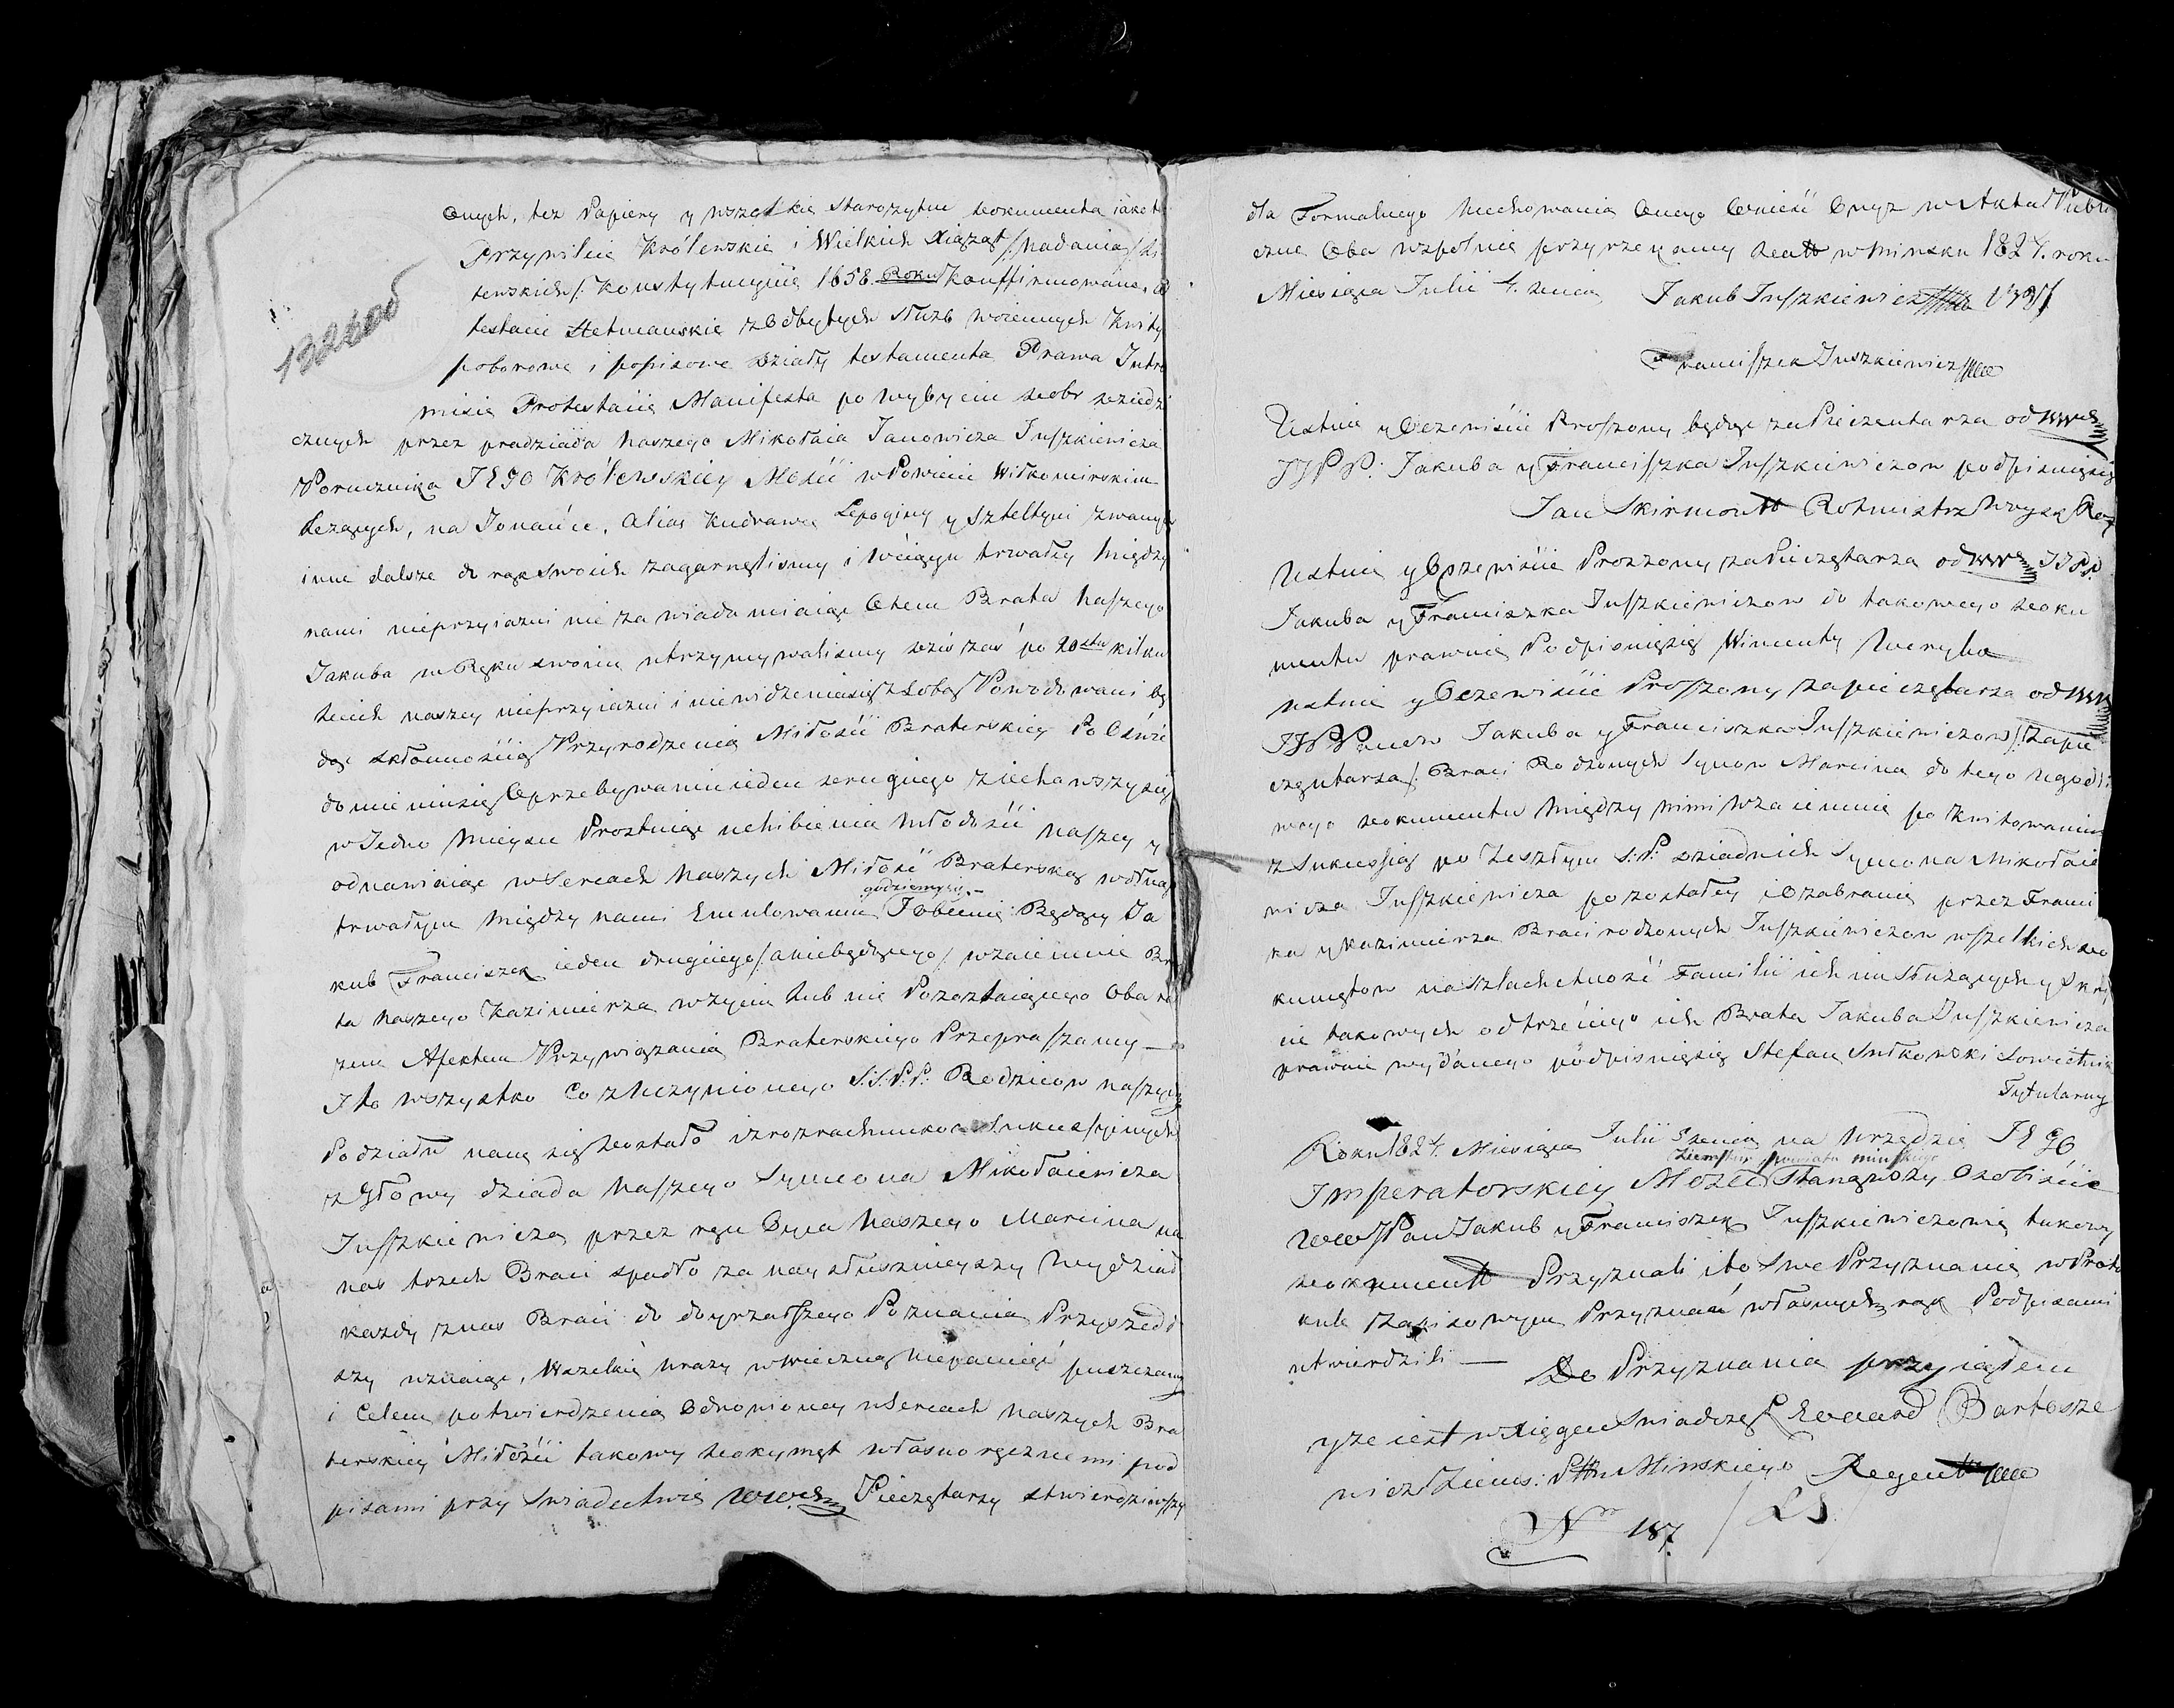 onych, też Papiery y wszelkie Starożytne dokumenta iako to
Przywileie Królewskie i Wielkich Xiążąt /: Nadania
tewskich :/ Konstytucyiię 1658. Roku Konffirmowane,
testacie Hetmanskie z Odbytych Służb woiennych Kwity
poborowe i popisowe działy testamenta Prawa Intro
misie Protestacie Manifesta po wybyciu dobr dziedzi
cznych przez pradziada naszego Mikołaia Janowicza Juszkiewicza
Porucznika JEGO Królewskiey Mości w Powiecie Wiłkomirskim
leżących, na Jonańce, alias Kudrawce Lepoginy y Szteltyni zwanych
inne dalsze do rąk swoich zagarnęlismy i wciągu trwałey między
nami nieprzyiazni nie zawiadamiaiąc Otem Brata Naszego
Jakuba w Ręku swoim utrzymywalismy dziś zaś po 20stu kilku
leciech naszey nieprzyiazni i niewidzenia się z Sobą Powodowani bę
dąc skłonnością Przyrodzenia Miłości Braterskiey Po Dowie
donieniu się O przebywaniu ieden drugiego ziechawszy się
w Jedno mieysce Prostuiąc uchibienia młodości naszey y
odnawiaiąc w Sercach Naszych Miłość Braterską
trwałym między nami Emulowaniu godziemy się.- Tobecnie Będący Ja
kub Franciszek ieden drugiego /: a niebędącego :/ wzaiemnie Bra
ta Naszego Kazimierza w życiu lub nie Pozostaiącego Oba ra
zem Afektem Przywiązania Braterskiego Przepraszamy —
I to wszystko Co z Uczynionego S:S:P:P: Rodzicow naszych
Podziału nam się dostało i z rozrachunkow Sukcessyinych
z głowy dziada Naszego Symona Mikołaiewicza
Juszkiewicza przez ręce Oyca Naszego Marcina na
nas trzech Braci spadło za nay słusznieyszy Wydział
każdy z nas Braci do doyrzalszego Poznania Przyszedł
szy uznaiąc, Wszelkie Urazy w wieczną Niepamięć puszczamy
i Celem potwierdzenia Odnowioney w Sercach naszych Bra
terskiey Miłości takowy dokymęt własnoręcznemi pod
pisami przy Swiadectwie WWch Pieczętarzy stwierdziwszy
dla Formalnego Uchowania Onego Wnieść Onyż w Akta Publi
czne Oba wspolnie przyrzekamy Datt w Minsku 1824. roku
Miesiąca Julii 4. dnia Jakub Juszkiewicz
Franciszek Juszkiewicz
Ustnie y Oczewiście Proszony będąc za Pieczentarza od WWch
JJPP: Jakuba y Franciszka Juszkiewiczow podpisuię się
Jan Skirmontt Rotmistrz
Ustnie y Oczewiście Proszony za Pieczętarza od WWch JJPP.
Jakuba y Franciszka Juszkiewiczow do takowego doku
mentu prawnie Podpisuię się Wincenty Weryha
ustnie y Oczewiście Proszony za pieczętarza od WW
JJPPanow Jakuba y Franciszka Juszkiewiczow /: za pie
czentarza :/ Braci Rodzonych Synow Marcina do tego Ugodli
wego dokumentu między nimi wzaiemnie po Kwitowaniu
z Sukcessią po Zeszłym S:P: dziadzie ich Symona Mikołaie
wicza Juszkiewicza pozostałey i O zabranie przez Franci
ka y Kazimierza Braci rodzonych Juszkiewiczow wszelkich do
kumętow na szlachetność Familii ich im Służących y
cie takowych od trzeciego ich Brata Jakuba Juszkiewicza
prawnie wydanego podpisuię się Stefan Sutkowski Sowietnik
Tytularny
Roku 1824. Miesiąca Julii 5 dnia na Urzędzie JEGO
Ziemskim powiatu minskiego
Imperatorskiey Mości Stanąwszy Osobiście
WW JPan Jakub y Franciszek Juszkiewiczowie takowy
dokumentt Przyznali i to Swe Przyznanie w Proto
kule Zapisowym Przyznań własnych rąk Podpisami
utwierdzili —
Do Przyznania przyiąłem
y że iest w Xięgach Swiadczę Edward Bartosze
wicz Ziems: Pttu Minskiego Regentt
Nro 187 / LS